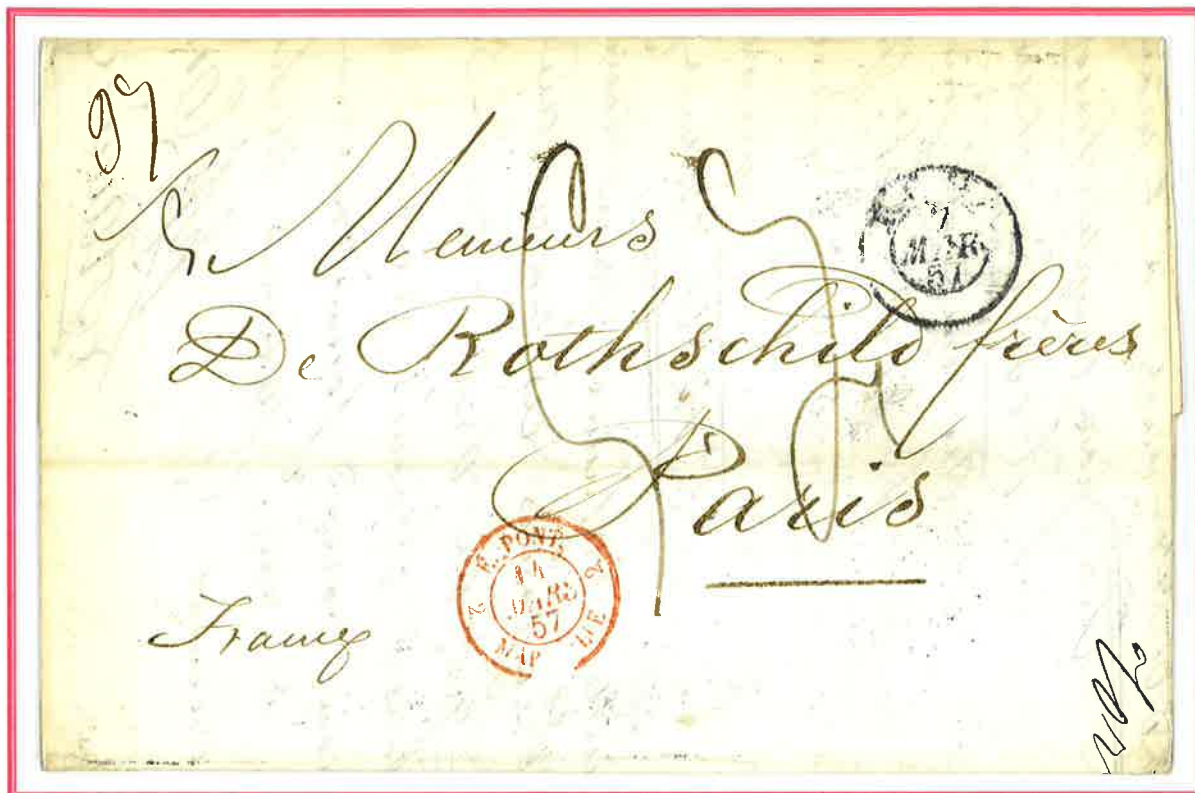 97
Messieurs
De Rothschild frères
Paris
7
MAR
57
E. PONT.
14
MARS
57
2 2
MAR LIE